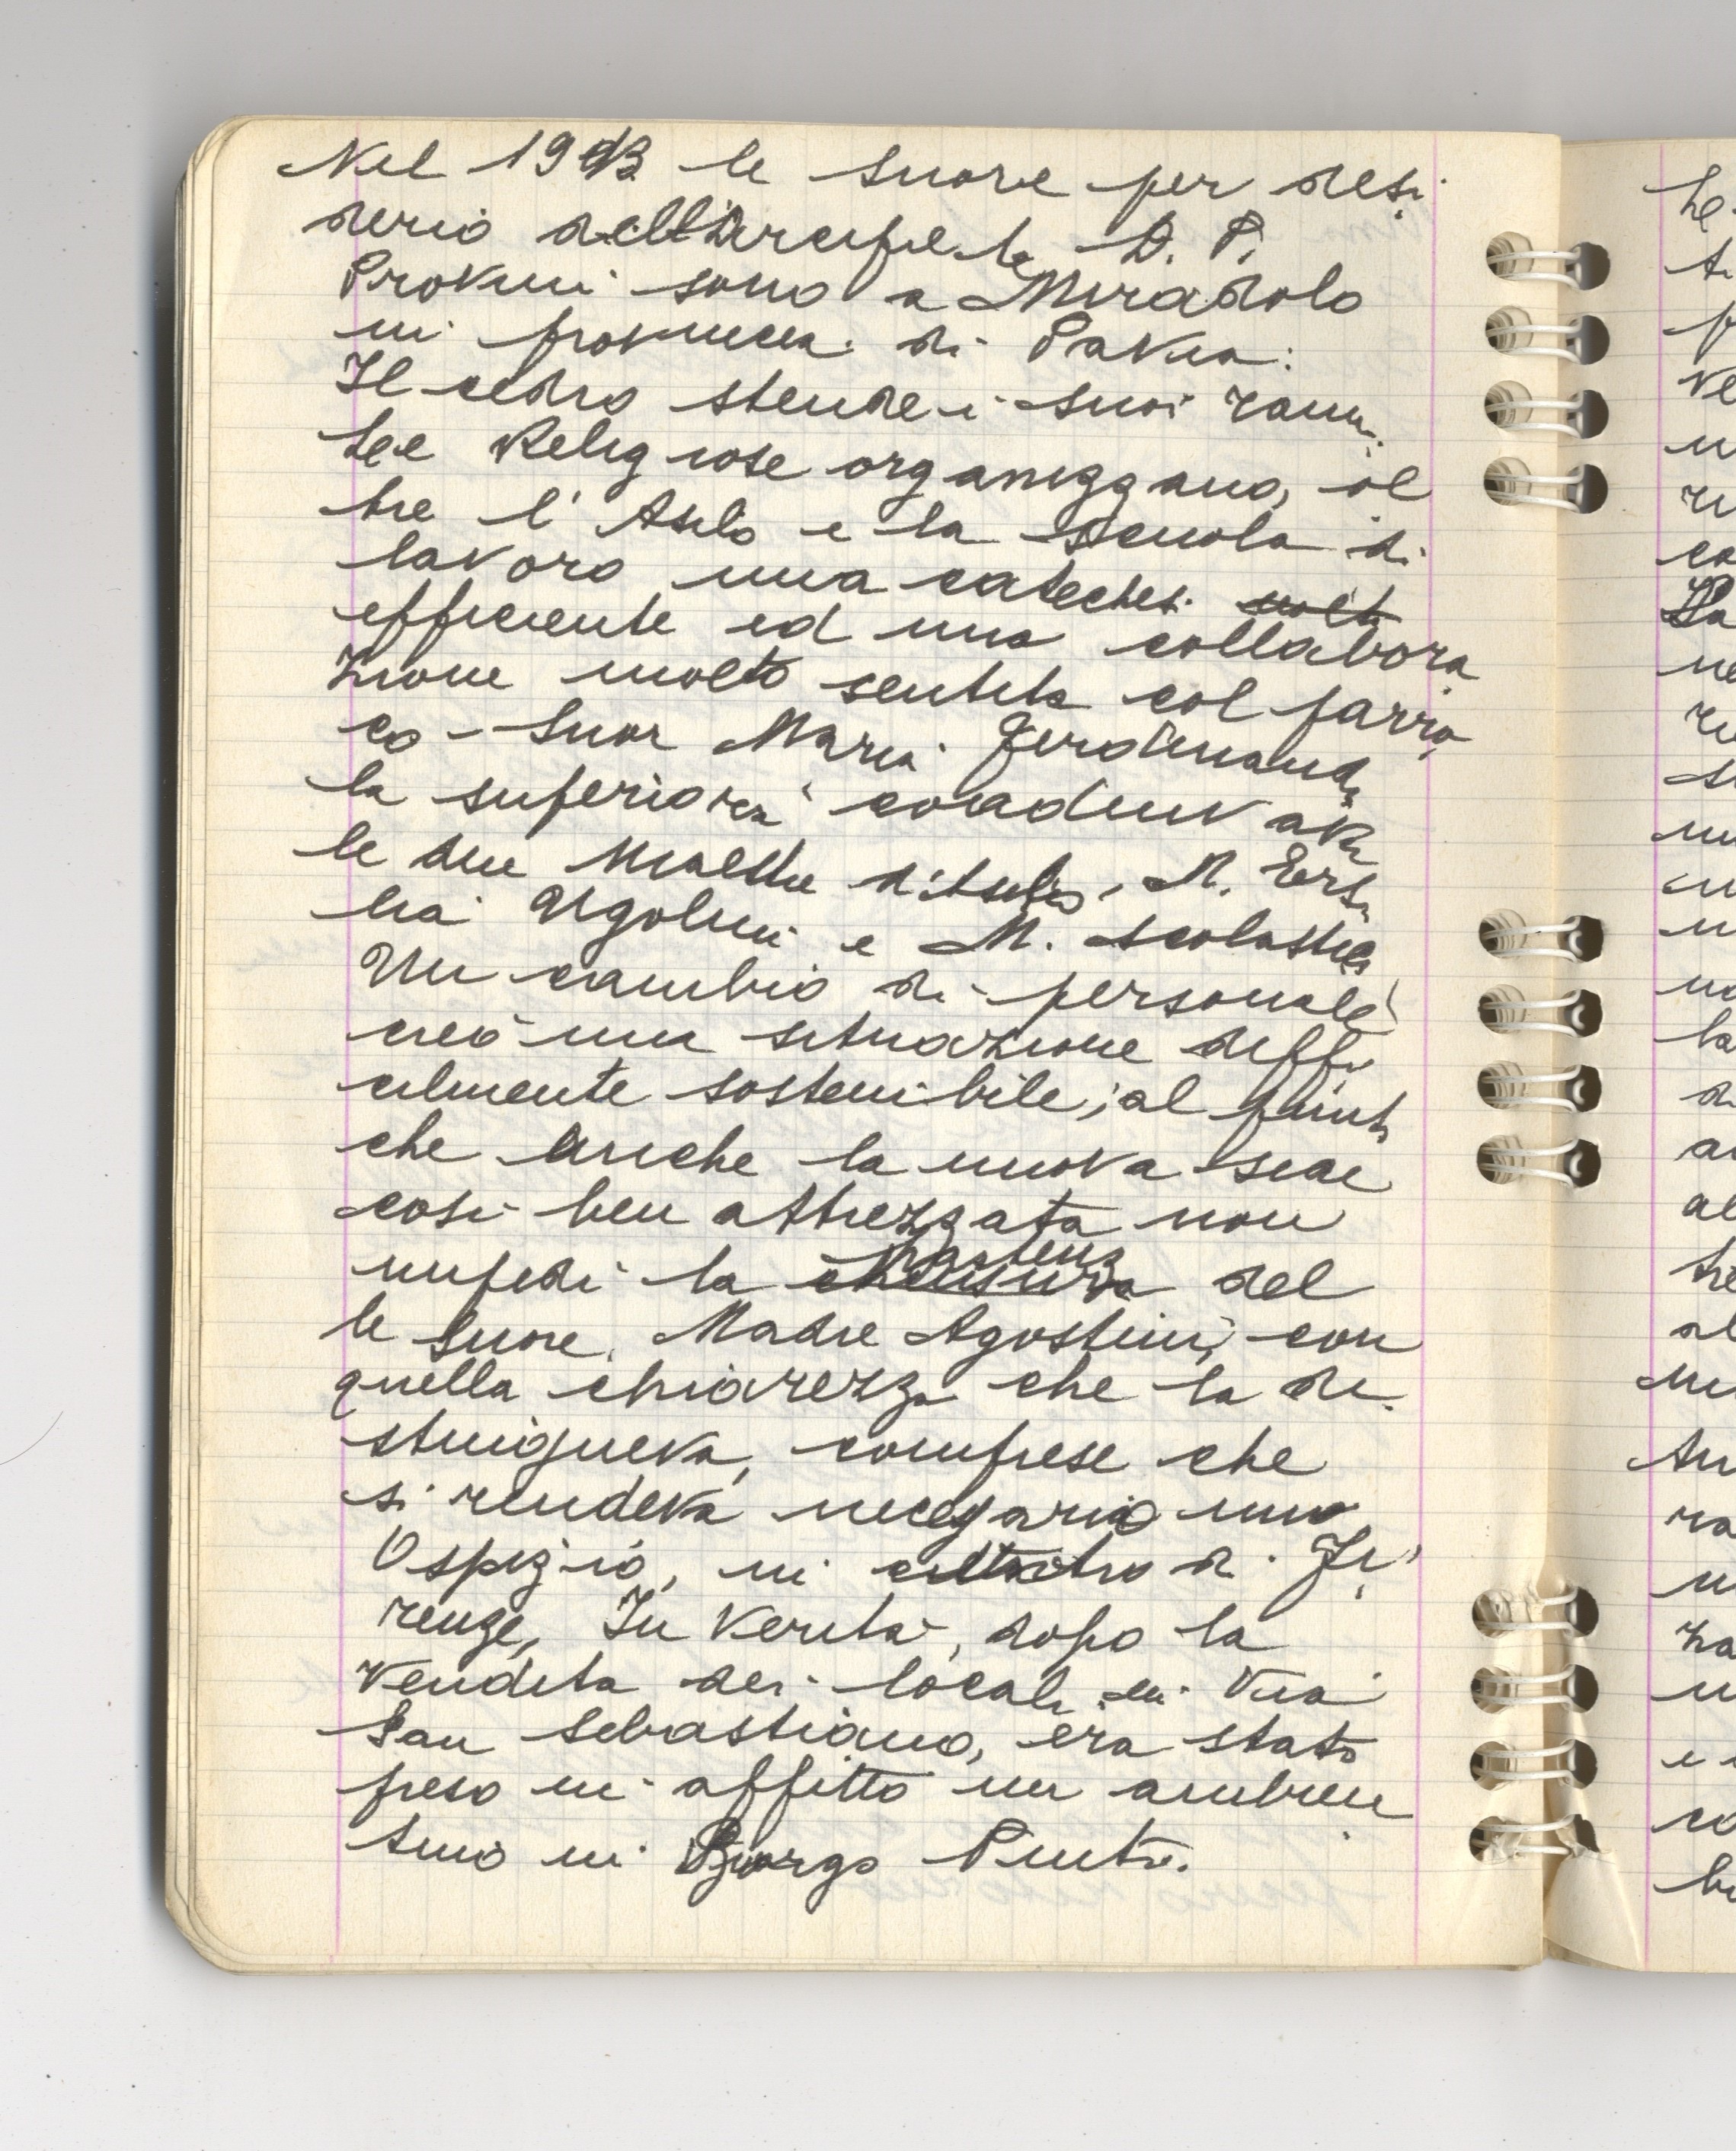 Nel 19 le Suore per desi
derio dell'Arciprete D. P.
Provini sono a Miradolo
in provincia di Pavia.
Il cedro stende i suoi rami.
Le Religiose organizzano, ol
tre l'Asilo e la Scuola di
lavoro una catechesi
efficiente ed una collabora
zione molto sentita col parro
co - Suor Maria Ferdinanda
la superiora coadiuvava
le due Maestre d'Asilo, M. Ersi
lia Ugolini e M. Scolastica
Un cambio di personale
creò una situazione diffi
cilmente sostenibile, al punto
che anche la nuova sede
così ben attrezzata non
impedì la partenza chiusura del
le Suore. Madre Agostini, con
quella chiarezza che la di
stingueva, comprese che
si rendeva necessario uno
Ospizio, in di Fi
renze, In verità, dopo la
vendita dei locali in Via
San Sebastiano, era stato
preso in affitto un ambien
tino in Borgo Pinti.